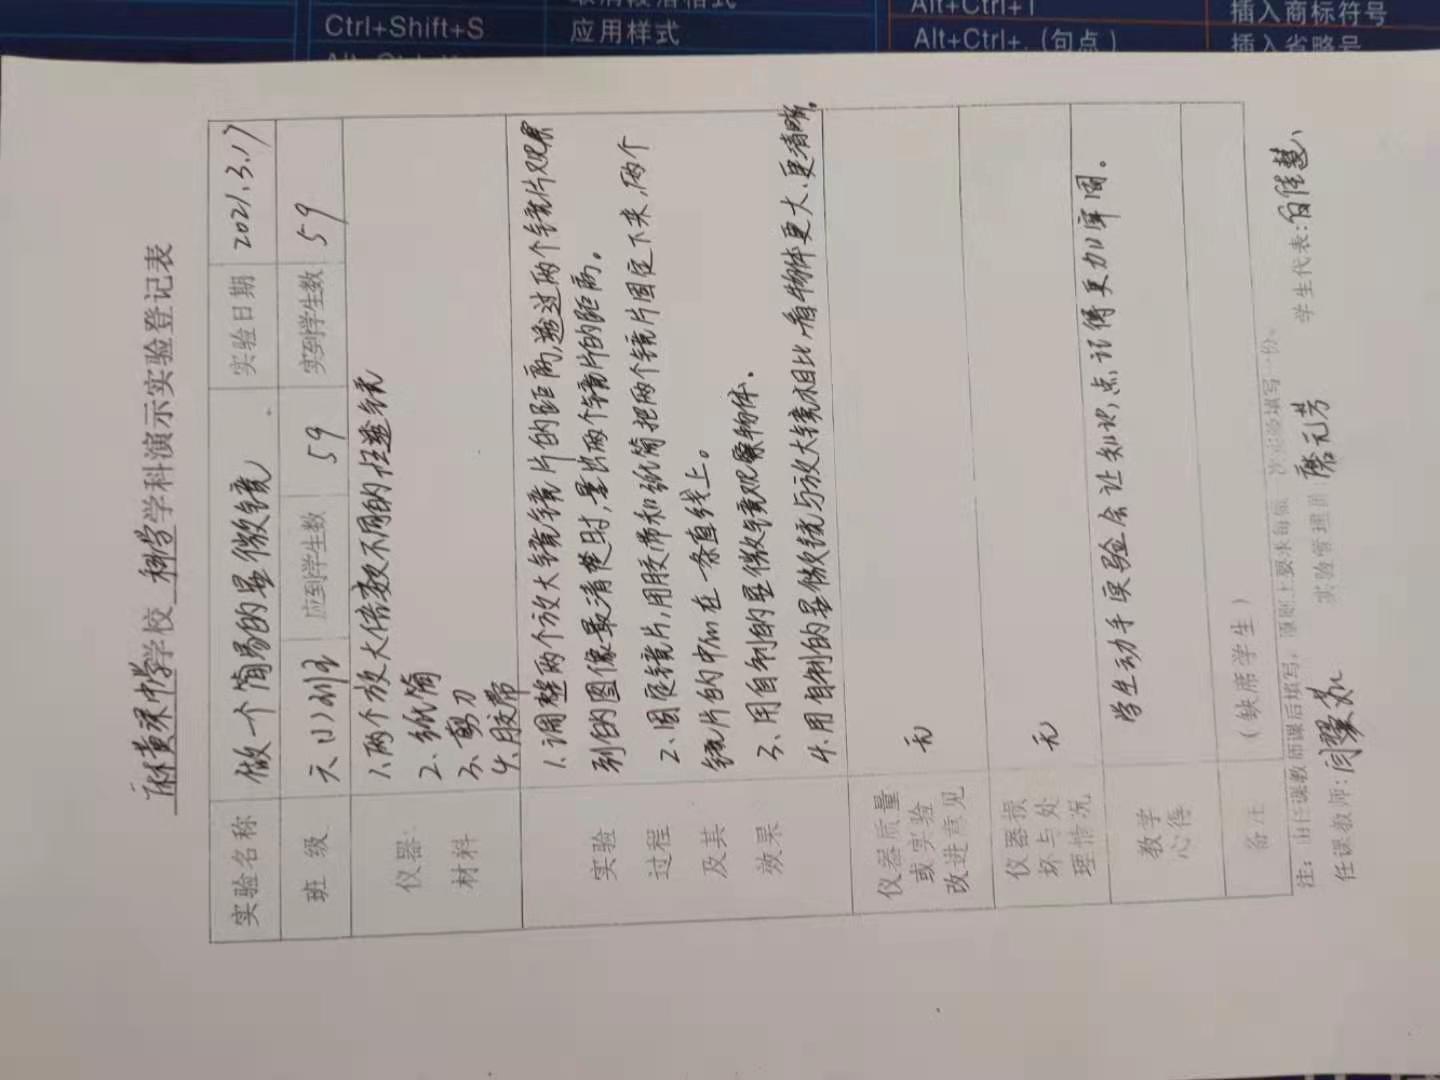 取消段落格式
Ctrl+Shift+S 应用样式
Alt+Ctrl+T 插入商标符号
Alt+Ctrl+. (句点) 插入省略号
麻黄梁中学学校 科学学科演示实验登记表
实验名称 做一个简易的显微镜 实验日期 2021.3.17
班 级 六(1)班 应到学生数 59 实到学生数 59
仪器
材料
1、两个放大倍数不同的放大镜
2、纸筒
3、剪刀
4、胶带
实验
过程
及其
效果
1、调整两个放大镜镜片的距离,透过两个镜片观察
到的图像最清楚时,量出两个镜片的距离。
2、固定镜片,用胶带和纸筒把两个镜片固定下来,两个
镜片的中心在一条直线上。
3、用自制的显微镜观察物体。
4、用自制的显微镜与放大镜相比,看物体更大、更清晰。
仪器质量
或实验
改进意见
无
仪器损
坏与处
理情况
无
教学
心得
学生动手实验会让知识点记得更加牢固。
备注 (缺席学生)
注:由任课教师课后填写,原则上要求每做 次实验填写一份。
任课教师: 实验管理员: 学生代表:白佳慧